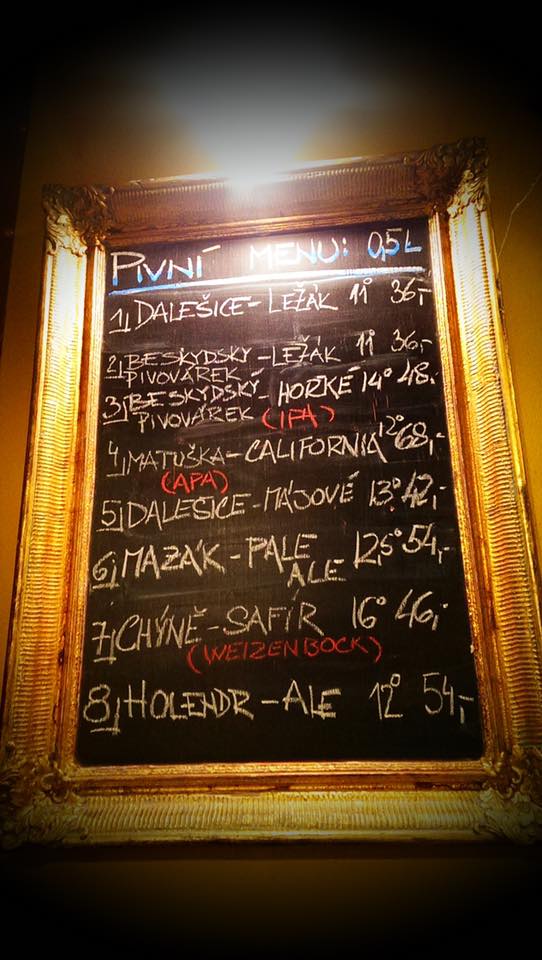 PIVNÍ MENU: 0,5L
1, DALEŠICE - LEŽÁK 11° 36,-
2, BESKYDSKÝ PIVOVÁREK - LEŽÁK 11° 36,-
3, BESKYDSKÝ PIVOVÁREK - HORKÉ 14° 48,-
(IPA)
4, MATUŠKA - CALIFORNIA 12° 68,-
(APA)
5, DALEŠICE - MÁJOVÉ 13° 42,-
6, MAZÁK - PALE ALE 12,5° 54,-
7, CHÝNĚ - SAFÍR 16° 46,-
(WEIZENBOCK)
8, HOLENDR - ALE 12° 54,-